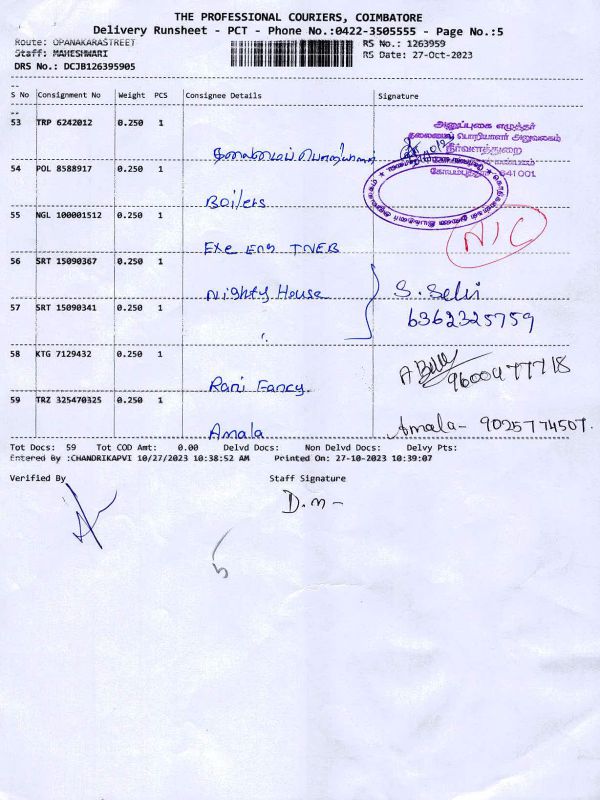 THE PROFESSIONAL COURIERS, COIMBATORE
Delivery Runsheet - PCT - Phone No.:0422-3505555 - Page No.:5
Route: OPANAKARASTREET
RS No.: 1263959
Staff: MAHESHWARI
RS Date: 27-Oct-2023
DRS No.: DCJB126395905
S No Consignment No Weight PCS Consignee Details Signature
53 TRP 6242012 0.250 1
அனுப்புகை எழுத்தர்
தலைமைப் பொறியாளர் அலுவலகம்
நீர்வளத்துறை
641001
54 POL 8588917 0.250 1
Boilers
55 NGL 100001512 0.250 1
Exe Eng TNEB
N/C
56 SRT 15090367 0.250 1
Nighty House
S. Selvi
57 SRT 15090341 0.250 1
6362325759
58 KTG 7129432 0.250 1
Rani Fancy
9600477718
59 TRZ 325470325 0.250 1
Amala
Amala- 9025774507.
Tot Docs: 59 Tot COD Amt: 0.00 Delvd Docs: Non Delvd Docs: Delvy Pts:
Entered By :CHANDRIKAPVI 10/27/2023 10:38:52 AM Printed On: 27-10-2023 10:39:07
Verified By Staff Signature
D.m-